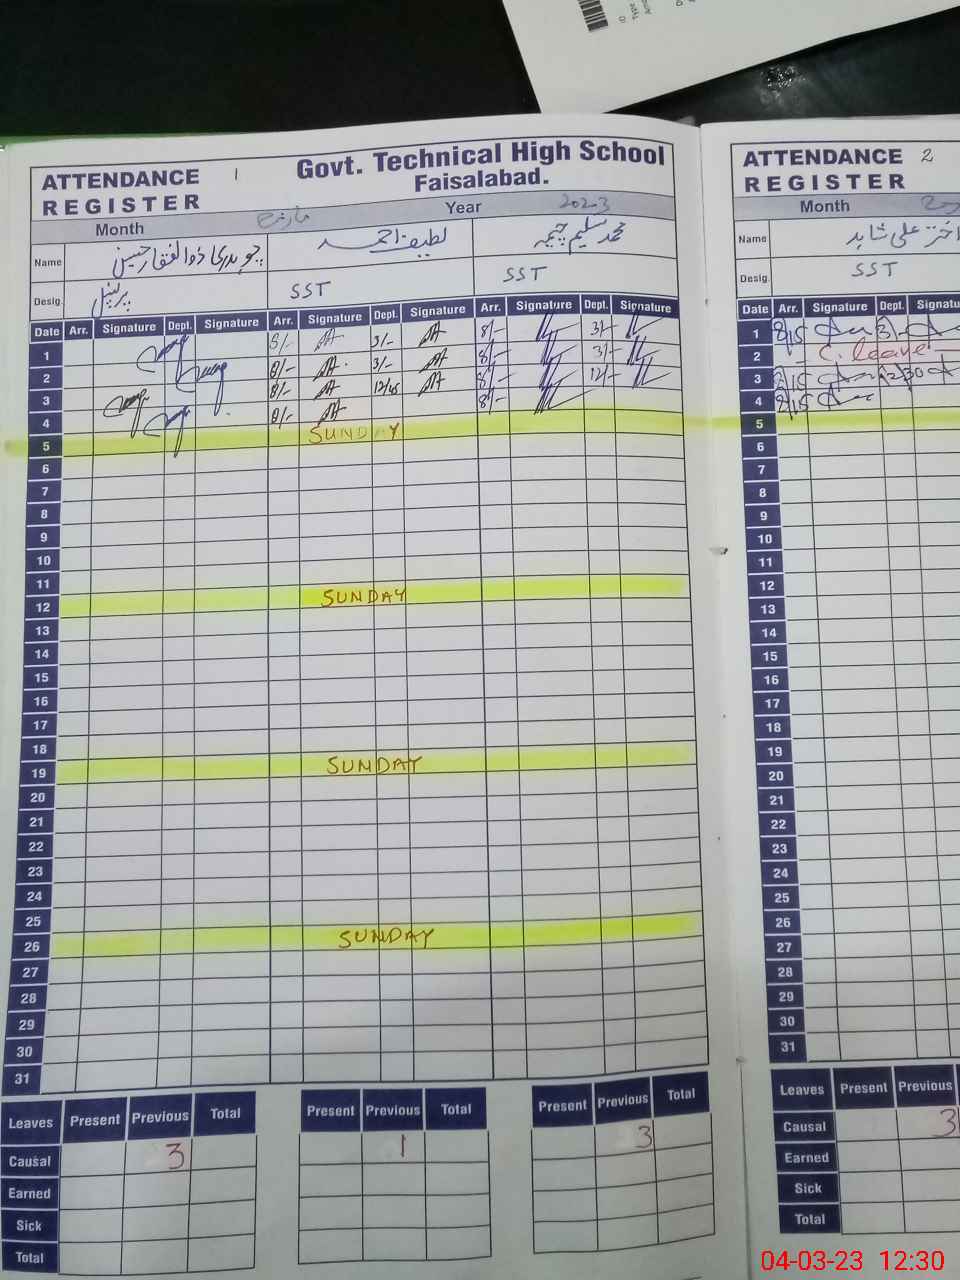 ATTENDANCE REGISTER 1
Govt. Technical High School
Faisalabad.
Month مارچ Year 2023
Name چوہدری ذوالفقار حسین لطیف احمد محمد سلیم چیمہ
Desig. پرنسپل SST SST
Date Arr. Signature Dept. Signature Arr. Signature Dept. Signature Arr. Signature Dept. Signature
1 8/- 3/- 8/- 3/-
2 8/- 3/- 8/- 3/-
3 8/- 8/- 12/-
4 8/- 8/-
5 SUNDAY
6
7
8
9
10
11
12 SUNDAY
13
14
15
16
17
18
19 SUNDAY
20
21
22
23
24
25
26 SUNDAY
27
28
29
30
31
Leaves Present Previous Total Present Previous Total Present Previous Total
Causal 3 1 3
Earned
Sick
Total
ATTENDANCE REGISTER 2
Month
Name اختر علی شاہد
Desig. SST
Date Arr. Signature Dept. Signatu
1 8/15 3/-
2 C. leave
3 8/15 12:30
4 8/15
5
6
7
8
9
10
11
12
13
14
15
16
17
18
19
20
21
22
23
24
25
26
27
28
29
30
31
Leaves Present Previous
Causal 3
Earned
Sick
Total
04-03-23 12:30